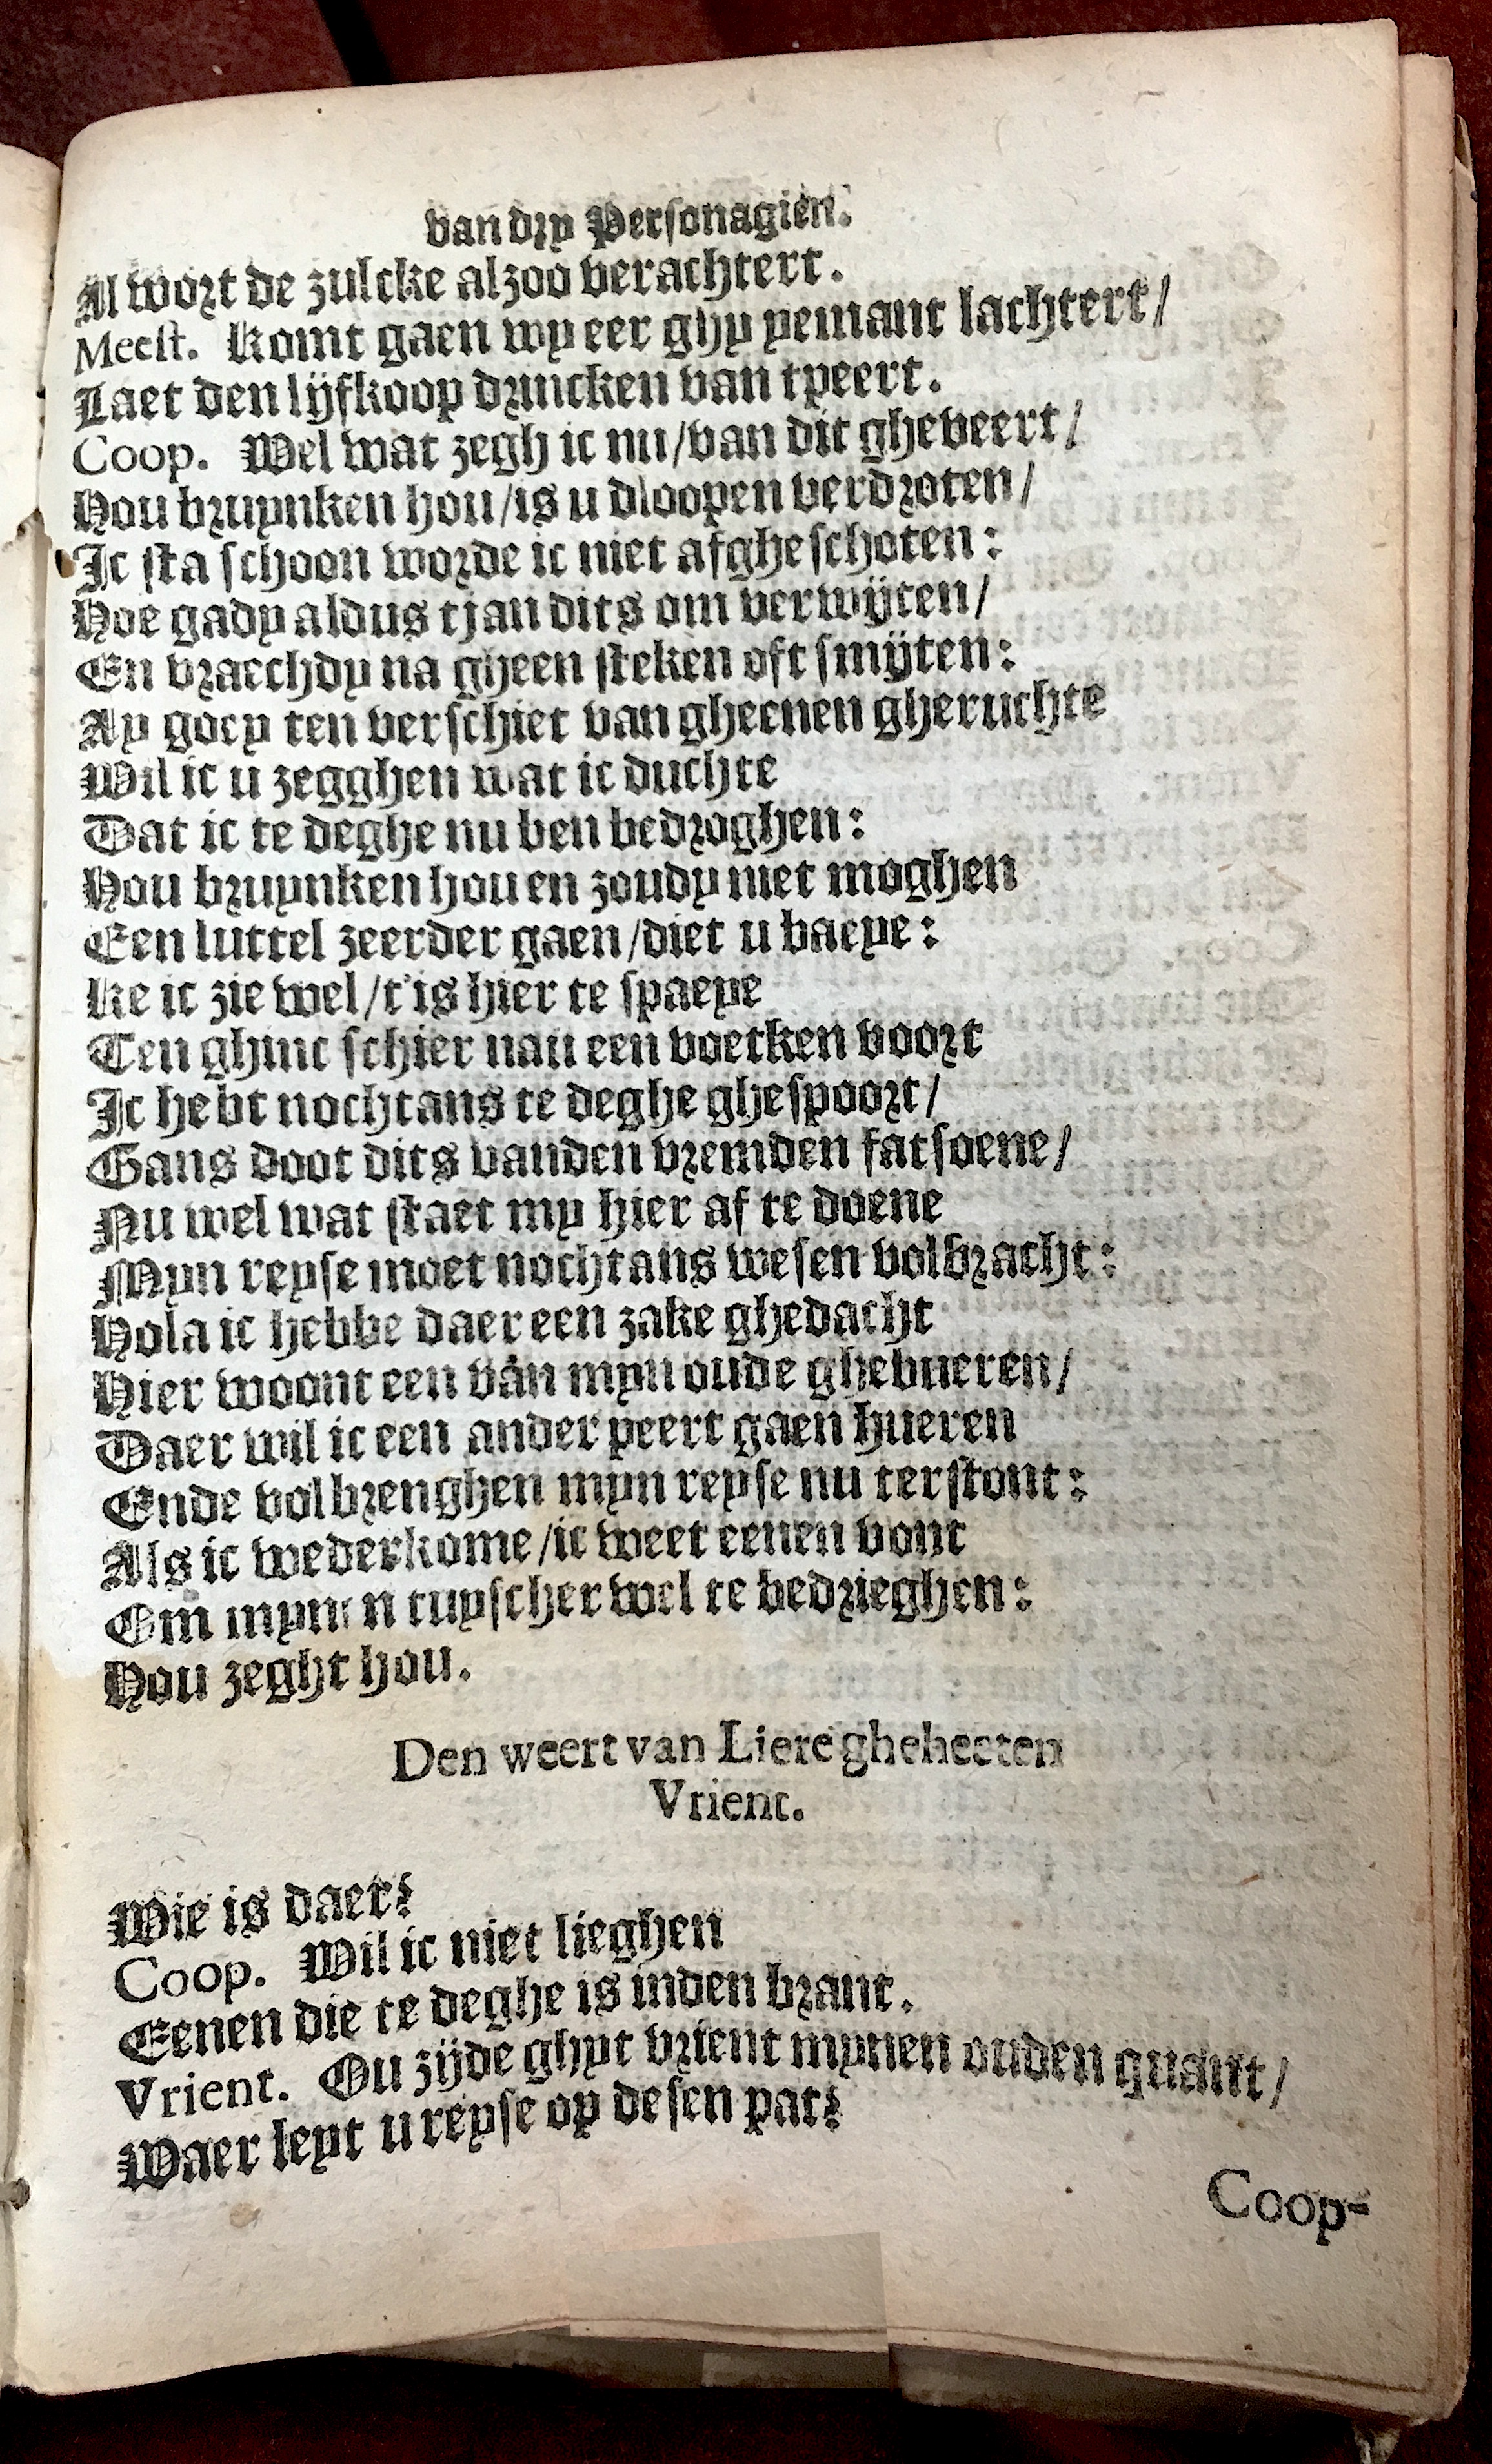 van dry Personagien.
Al wort de zulcke alzoo verachtert.
Meest. Komt gaen wy eer ghy yemant lachtert/
Laet den lijfkoop drincken van tpeert.
Coop. Wel wat zegh ic nu/van dit gheveert/
Hou bruynken hou/is u dloopen verdroten/
Ic sta schoon worde ic niet afgheschoten:
Hoe gady aldus tjan dits om verwijten/
En vraechdy na gheen steken oft smijten:
Ay goey ten verschiet van gheenen gheruchte
Wil ic u zegghen wat ic duchte
Dat ic te deghe nu ben bedroghen:
Hou bruynken hou en zoudy niet moghen
Een luttel zeerder gaen/diet u baeye:
Ke ic zie wel/t'is hier te spaeye
Ten ghinc schier nau een voetken voort
Ic hebt nochtans te deghe ghespoort/
Gans doot dits vanden vremden fatsoene/
Nu wel wat staet my hier af te doene
Myn reyse moet nochtans wesen volbracht:
Hola ic hebbe daer een zake ghedacht
Hier woont een van myn oude ghebueren/
Daer wil ic een ander peert gaen hueren
Ende volbrenghen myn reyse nu terstont:
Als ic wederkome/ic weet eenen vont
Om mynen tuyscher wel te bedrieghen:
Hou zeght hou.
Den weert van Liere gheheeten
Vrient.
Wie is daer?
Coop. Wil ic niet lieghen
Eenen die te deghe is inden brant.
Vrient. Ou zijde ghyt vrient mynen ouden quant/
Waer leyt u reyse op desen pat?
Coop-